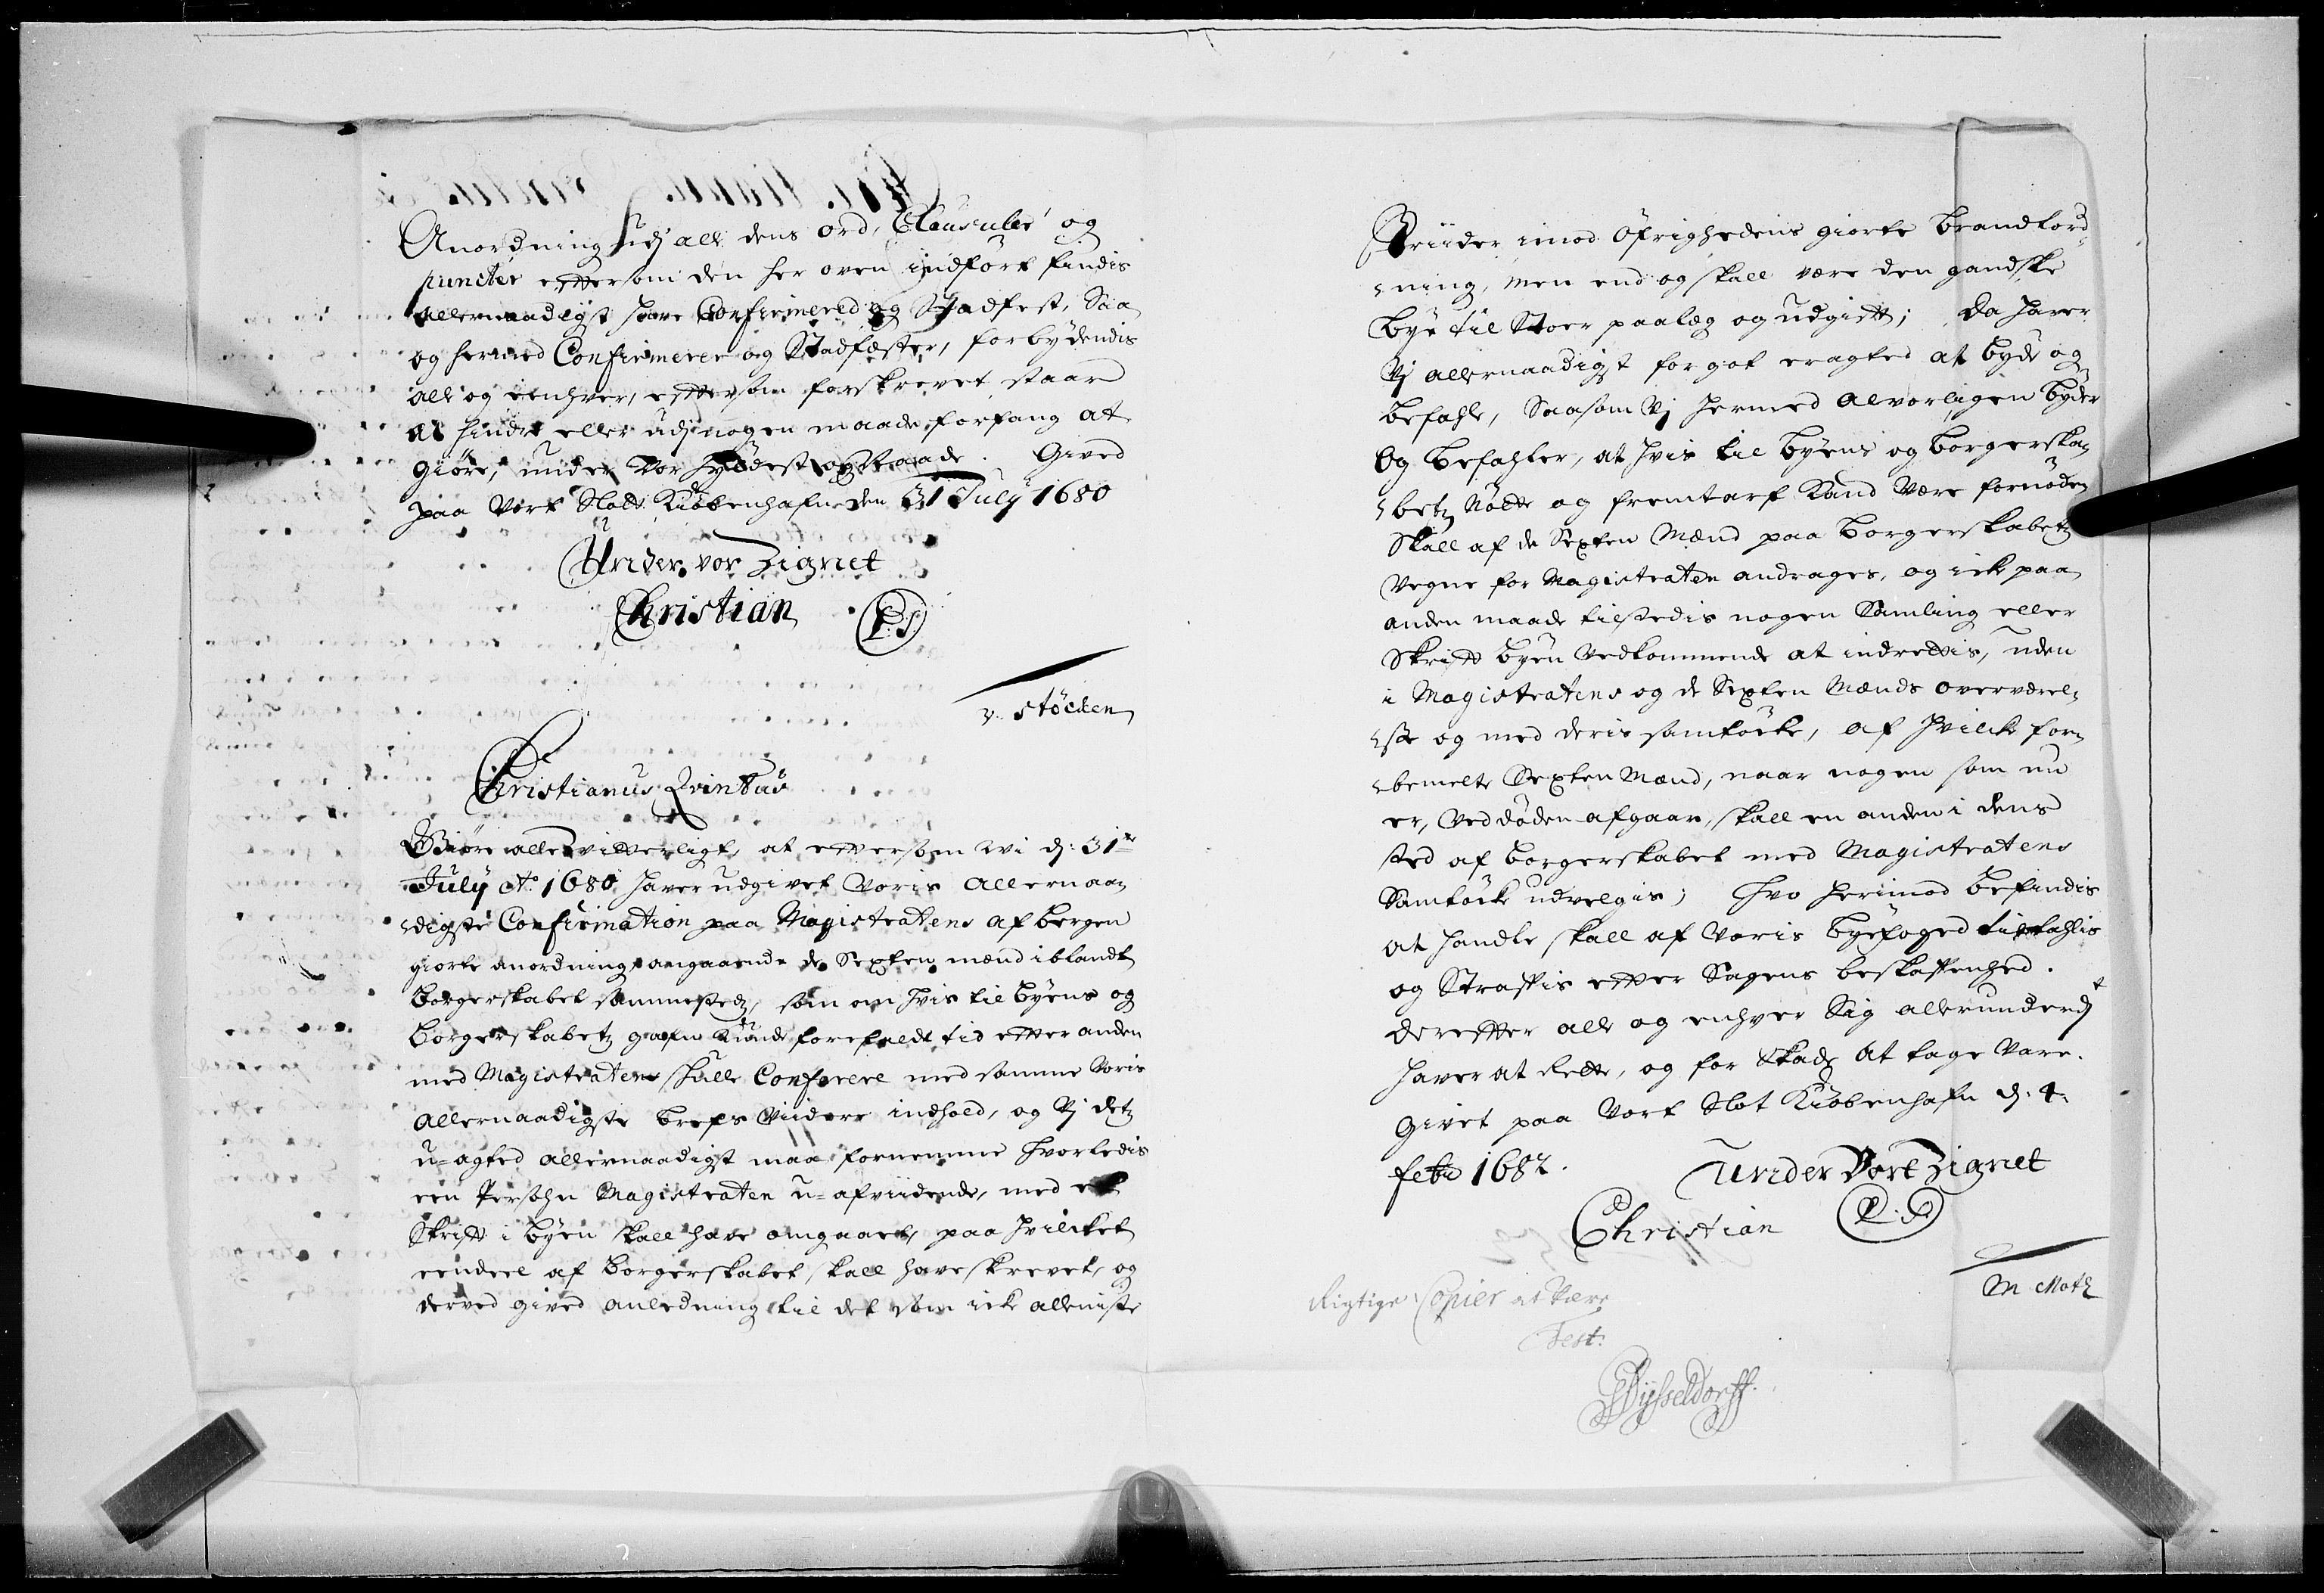 Anordning udj all dens ord, Clausuler og
puncter efftersom den her oven indfört findis
allernaadigst have Confirmered og Stadfest, Saa
og hermed Confirmerer og Stadfæster, forbydendis
alle og eenhver, efftersom forskrevet staar
at hindre eller udj nogen maade forfang at
giöre, under Vor hyldest og Naade. Gived
paa Vort Slott Kiöbenhafn den 31 July 1680
Under vor Zignet
Christian L.S.
v. Stöcken
Christianus Qvintus
Giöre alle vitterligt, at eftersom wi d: 31te
July Ao. 1680 haver udgivet Voris allernaa¬
digste Confirmation paa Magistratens af bergen
giorte anordning angaaende de Sexten mænd iblandt
borgerskabet sammestedz, som om hvis til byens og
borgerskabetz gafn kunde forefalde tid effter anden
med Magistraten skulle Conferere med samme Voris
allernaadigste brefs Viidere indhold, og Vj detz
u-agted allernaadigst maa fornemme hvorledis
een Persohn Magistraten u-afviidende, med et
Skrifft i byen skall have omgaaet, paa hvilcket
eendeel af borgerskabet skall have skrevet, og
derved gived anledning til det som icke alleniste
Striider imod Öfrighedens giorte brandford¬
ning, men end og skall være den gandske
bye til Stoer paalæg og udgifft; Da haver
Vj allernaadigst for got eragted at byde og
befahle, Saasom Vj hermed alvorligen byder
Og befahler, at hvis til byens og borgerska¬
betz Nötte og fremtarf kand være fornöden
Skall af de Sexten Mænd paa borgerskabetz
vegne for Magistraten andrages, og icke paa
anden maade tilstedis nogen Samling eller
Skrifft byen vedkommende at indrettis, uden
i Magistratens og de Sexten Mænds overværel¬
se og med deris samtöcke, af hvilcke for¬
bemelte Sexten Mænd, naar nogen som nu
er, ved döden afgaar, skall en anden i dens
sted af borgerskabet med Magistratens
Samtöcke udvelgis; Hvo herimod befindis
at handle skall af Voris byefoged tiltahlis
og Straffis effter Sagens beskaffenhed.
dereffter alle og enhver Sig allerunderdt
haver at Rette, og for Skade at tage Vare.
Givet paa Vort Slot Kiöbenhafn d: 4
febr 1682. Under Vort Zignet
Christian L.S.
M Moth
Rigtige Copier at være
Test:
Dÿsseldorff.